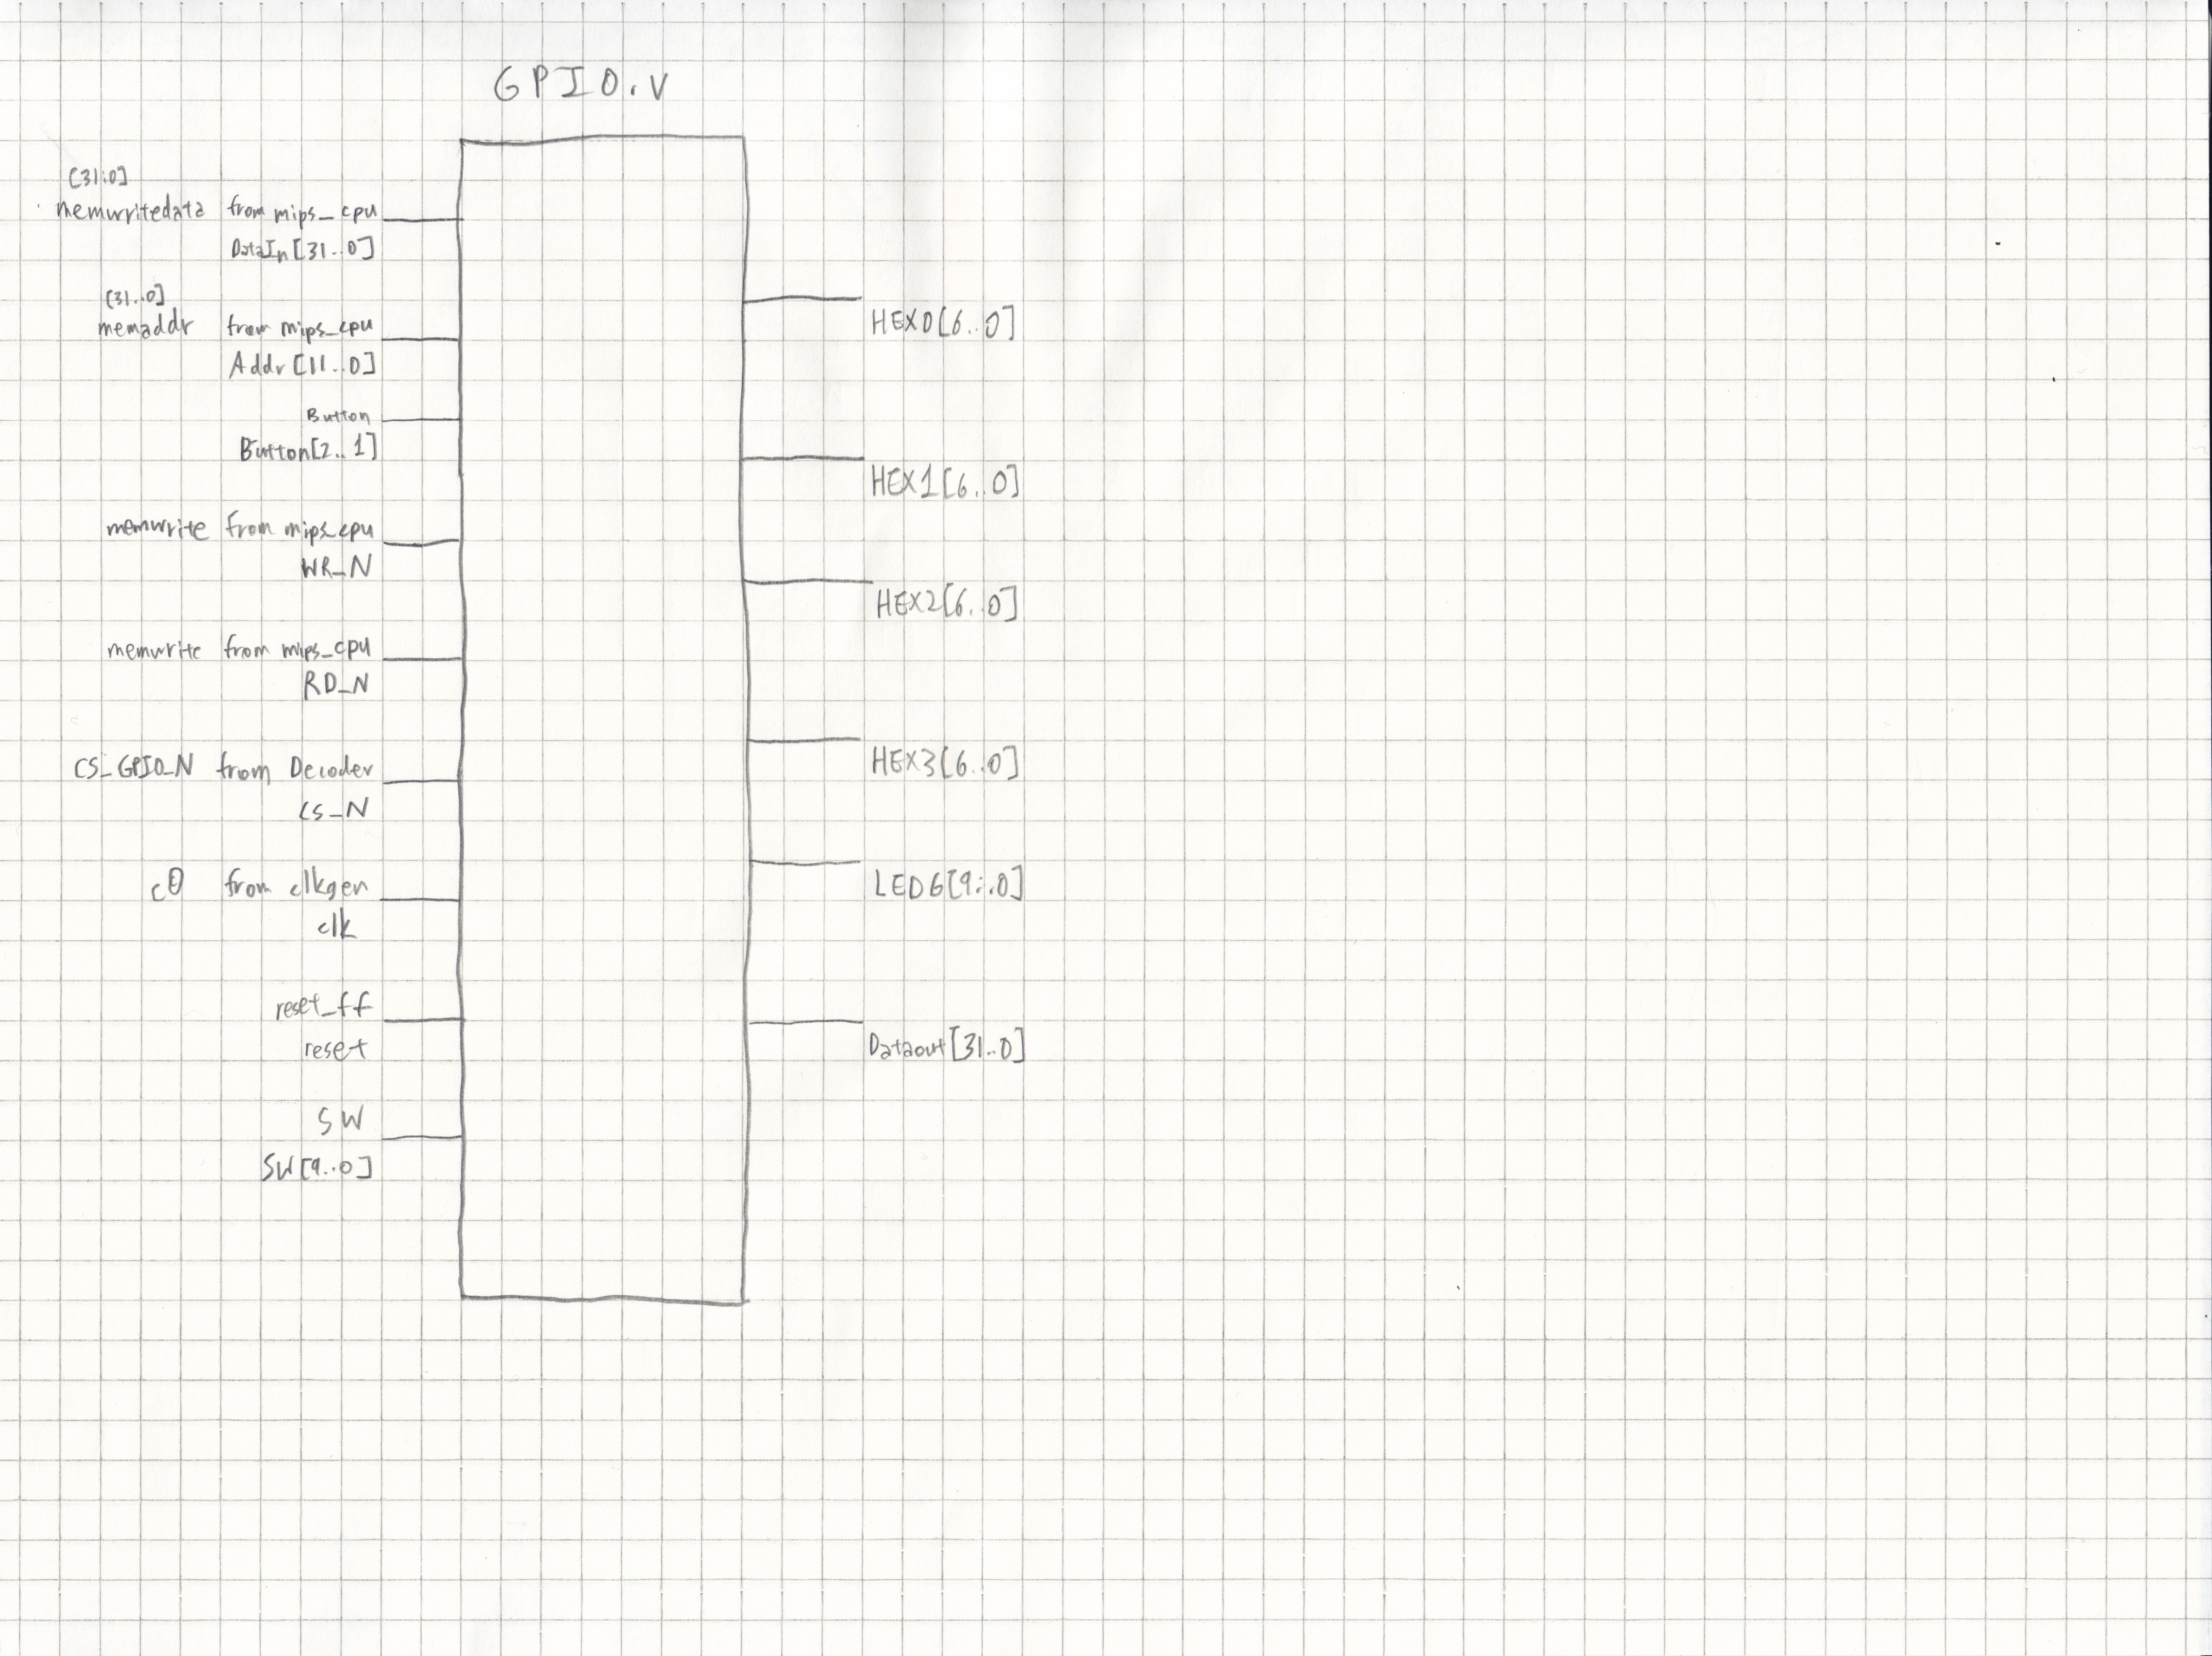 GPIO.v
[31:0]
memwritedata from mips_cpu
DataIn[31..0]
[31..0]
memaddr from mips_cpu
Addr[11..0]
Button
Button[2..1]
memwrite from mips_cpu
WR_N
memwrite from mips_cpu
RD_N
CS_GPIO_N from Decoder
CS_N
c0 from clkgen
clk
reset_ff
reset
SW
SW[9..0]
HEX0[6..0]
HEX1[6..0]
HEX2[6..0]
HEX3[6..0]
LEDG[9..0]
Dataout[31..0]